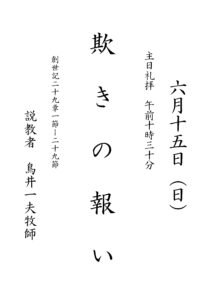 六月十五日（日）
主日礼拝　午前十時三十分
欺きの報い
創世記二十九章一節ー二十九節
説教者　鳥井一夫牧師